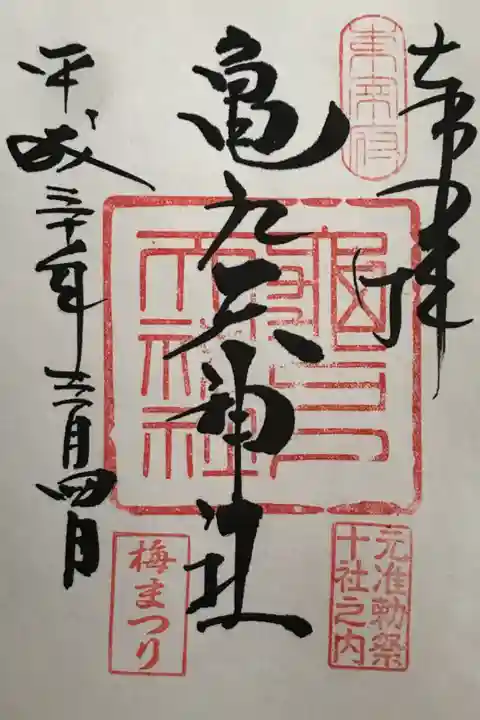 奉拝
東宰府
亀戸天神社
平成三十年三月四日
元准勅祭
十社之内
梅まつり